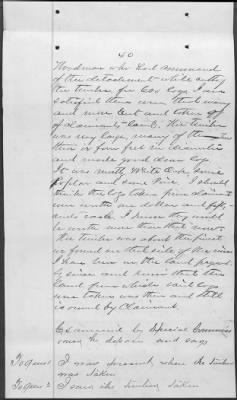 40
Woodman who had command
of the detachment while cutting
the timber for said logs I am
satisfied there were that many
and more cut and taken off
of claimants land. The timber
was very large, many of them
three or four feet in diameter
and made good clear logs
It was mostly White Oak, some
Poplar and some Pine. I should
think the logs taken from claimant
were worth one dollar and fifty
cents each. I know they would
be worth more than that now.
The timber was about the finest
we found on that side of the river
I have been on the land frequent
ly since and know that the
land from which said logs
was taken was then and still
is owned by Claimant.
Examined by Special Commis
sioner the depon and says
To Ques 1 I was present when the timber
was taken
To Ques 2 I saw the timber taken